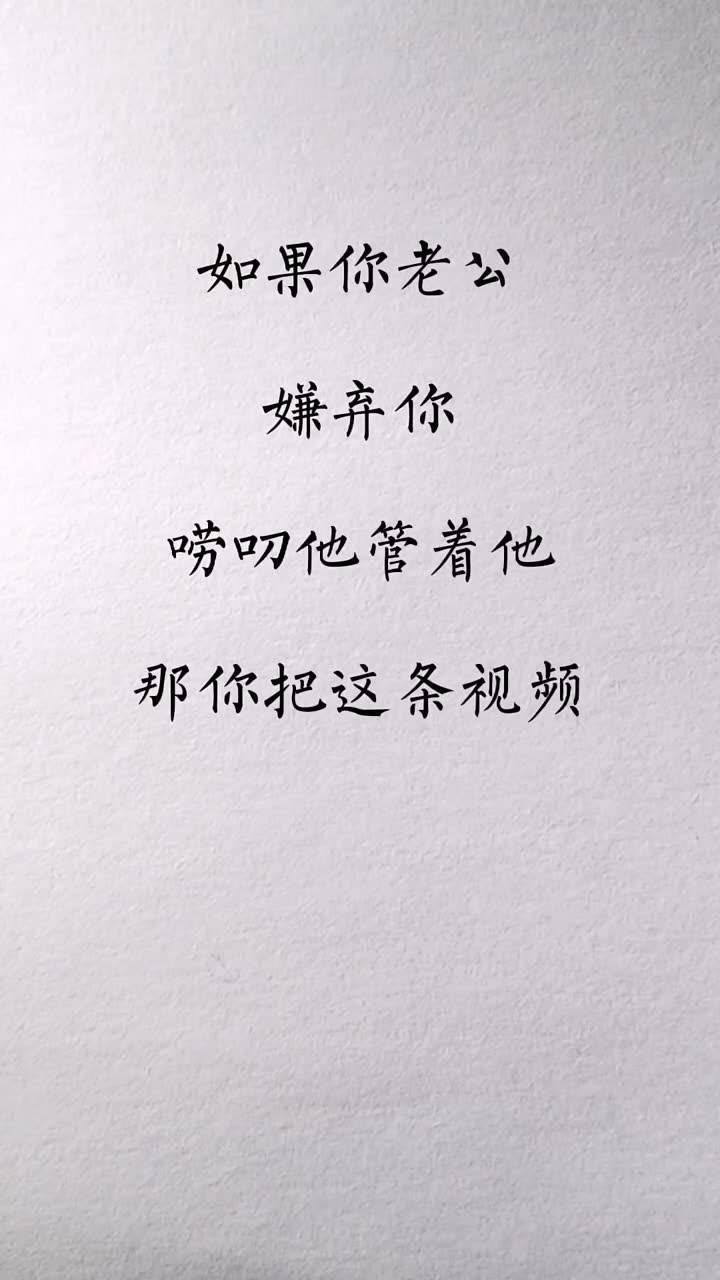 如果你老公
嫌弃你
唠叨他管着他
那你把这条视频